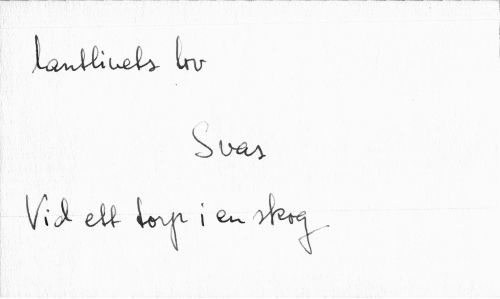 Lantlivets lov
Svas
Vid ett torp i en skog